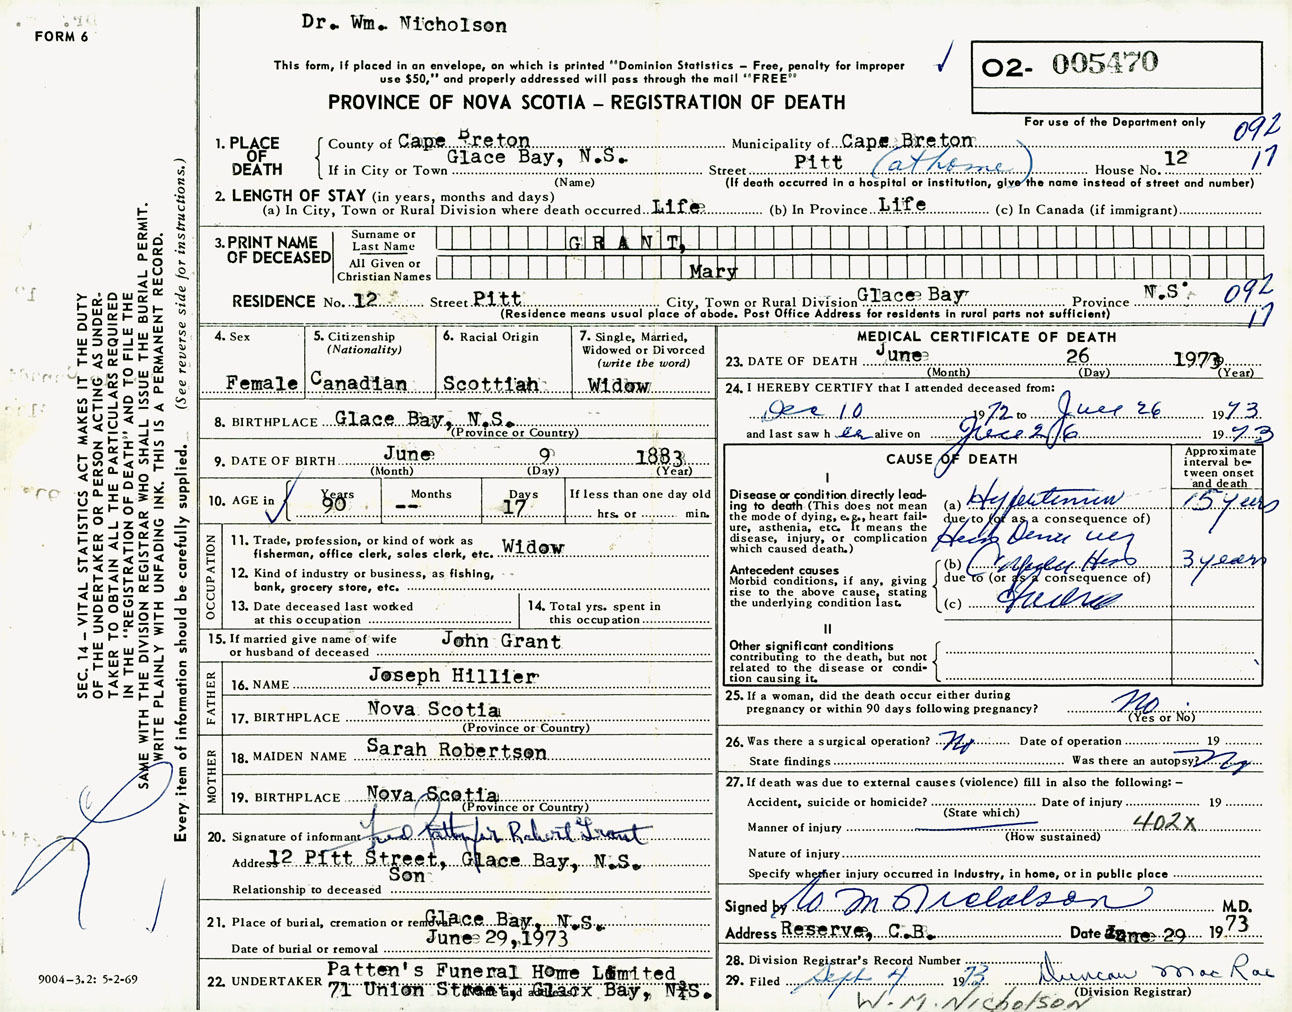 Dr. Wm. Nicholson
FORM 6
This form, if placed in an envelope, on which is printed "Dominion Statistics – Free, penalty for improper
use $50," and properly addressed will pass through the mail "FREE"
O2- 005470
PROVINCE OF NOVA SCOTIA – REGISTRATION OF DEATH
For use of the Department only
092
17
1. PLACE OF DEATH
County of Cape Breton Municipality of Cape Breton
If in City or Town Glace Bay, N.S. Street Pitt (at home) House No. 12
(Name) (If death occurred in a hospital or institution, give the name instead of street and number)
2. LENGTH OF STAY (in years, months and days)
(a) In City, Town or Rural Division where death occurred Life (b) In Province Life (c) In Canada (if immigrant)
3. PRINT NAME OF DECEASED
Surname or Last Name GRANT,
All Given or Christian Names Mary
RESIDENCE No. 12 Street Pitt City, Town or Rural Division Glace Bay Province N.S. 092
(Residence means usual place of abode. Post Office Address for residents in rural parts not sufficient) 17
4. Sex Female
5. Citizenship (Nationality) Canadian
6. Racial Origin Scottish
7. Single, Married, Widowed or Divorced (write the word) Widow
8. BIRTHPLACE Glace Bay, N.S.
(Province or Country)
9. DATE OF BIRTH June 9 1883
(Month) (Day) (Year)
10. AGE in Years 90 Months -- Days 17 If less than one day old
hrs. or min.
OCCUPATION
11. Trade, profession, or kind of work as
fisherman, office clerk, sales clerk, etc. Widow
12. Kind of industry or business, as fishing,
bank, grocery store, etc.
13. Date deceased last worked
at this occupation
14. Total yrs. spent in
this occupation
15. If married give name of wife
or husband of deceased John Grant
FATHER
16. NAME Joseph Hillier
17. BIRTHPLACE Nova Scotia
(Province or Country)
MOTHER
18. MAIDEN NAME Sarah Robertson
19. BIRTHPLACE Nova Scotia
(Province or Country)
20. Signature of informant Robert Grant
Address 12 Pitt Street, Glace Bay, N.S.
Relationship to deceased Son
21. Place of burial, cremation or removal Glace Bay, N.S.
Date of burial or removal June 29, 1973
22. UNDERTAKER Patten's Funeral Home Limited
71 Union Street, Glacx Bay, N.S.
MEDICAL CERTIFICATE OF DEATH
23. DATE OF DEATH June 26 1973
(Month) (Day) (Year)
24. I HEREBY CERTIFY that I attended deceased from:
Dec 10 1972 to June 26 1973
and last saw her alive on June 26 1973
CAUSE OF DEATH
Approximate interval between onset and death
I
Disease or condition directly lead-
ing to death (This does not mean
the mode of dying, e.g., heart fail-
ure, asthenia, etc. It means the
disease, injury, or complication
which caused death.)
(a) Hypertension 15 years
due to (or as a consequence of)
Antecedent causes
Morbid conditions, if any, giving
rise to the above cause, stating
the underlying condition last.
(b) 3 years
due to (or as a consequence of)
(c)
II
Other significant conditions
contributing to the death, but not
related to the disease or condi-
tion causing it.
25. If a woman, did the death occur either during
pregnancy or within 90 days following pregnancy? No
(Yes or No)
26. Was there a surgical operation? No Date of operation 19
State findings Was there an autopsy? No
27. If death was due to external causes (violence) fill in also the following: –
Accident, suicide or homicide? Date of injury 19
(State which)
Manner of injury 402X
(How sustained)
Nature of injury
Specify whether injury occurred in Industry, in home, or in public place
Signed by W M Nicholson M.D.
Address Reserve, C.B. Date June 29 1973
28. Division Registrar's Record Number
29. Filed Sept 4 1973 Duncan MacRae
(Division Registrar)
W. M. NICHOLSON
SEC. 14 – VITAL STATISTICS ACT MAKES IT THE DUTY
OF THE UNDERTAKER OR PERSON ACTING AS UNDER-
TAKER TO OBTAIN ALL THE PARTICULARS REQUIRED
IN THE "REGISTRATION OF DEATH" AND TO FILE THE
SAME WITH THE DIVISION REGISTRAR WHO SHALL ISSUE THE BURIAL PERMIT.
WRITE PLAINLY WITH UNFADING INK. THIS IS A PERMANENT RECORD.
Every item of information should be carefully supplied. (See reverse side for instructions.)
9004-3.2: 5-2-69